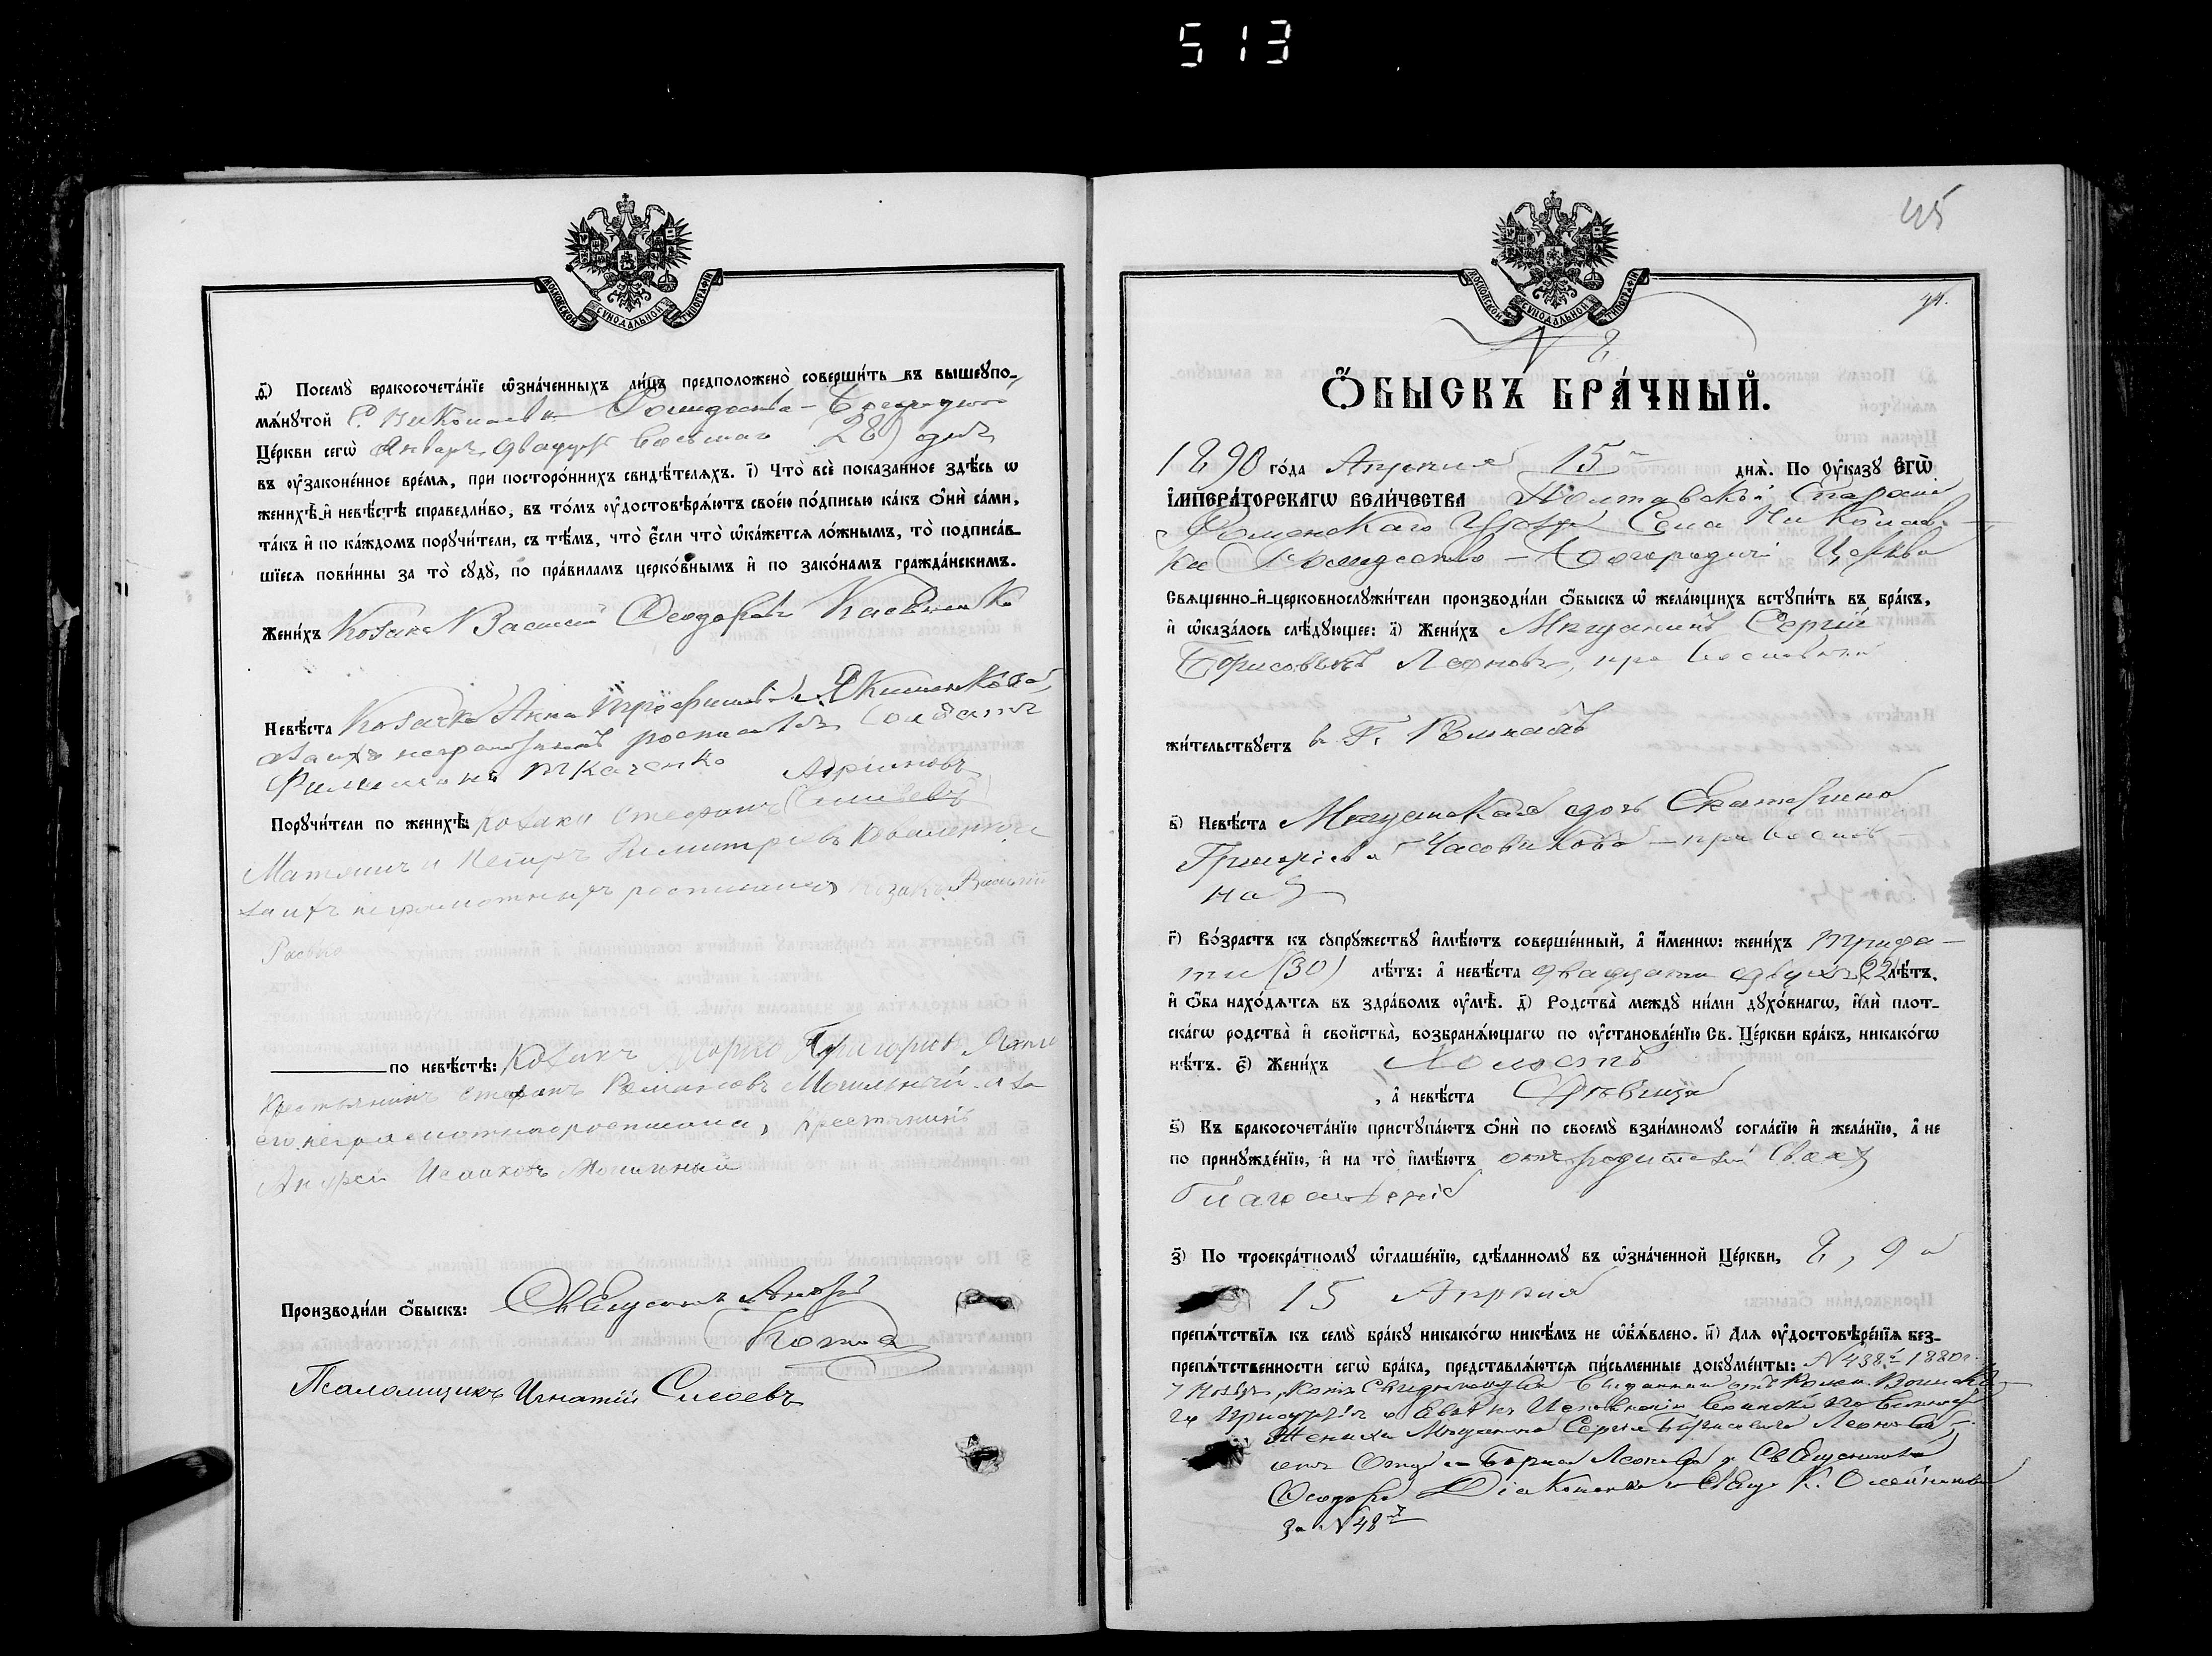 513
МОСКОВСКОЙ СѴНОДАЛЬНОЙ ТИПОГРАФІИ
д҃) Посемꙋ̀ бракосочета́нїе ѡ҆зна́ченныхъ ли́цъ предположено̀ соверши́ть въ вышеꙋпо-
мѧ́нꙋтой С. Николаевки Рождества-Богородич.
Це́ркви сегѡ̀ Января двадцать восьмаго (28) дня
въ ᲂу҆зако́ненное вре́мѧ, при посторо́ннихъ свидѣ́телѧхъ. і҃) Что̀ всѐ показа́нное здѣ́сь ѡ
женихѣ̀ и҆ невѣ́стѣ справедли́во, въ то́мъ ᲂу҆достовѣрѧ́ютъ свое́ю по́дписью ка́къ ѻ҆нѝ са́ми,
та́къ и҆ по ка́ждомъ порꙋчи́тели, съ тѣ́мъ, что̀ є҆́сли что̀ ѡ҆ка́жетсѧ ло́жнымъ, то̀ подписа́в-
шїесѧ пови́нны за то̀ сꙋдꙋ̀, по пра́виламъ церко́внымъ и҆ по зако́намъ гражда́нскимъ.
Жени́хъ Козакъ Василій Ѳеодоровъ
Невѣ́ста Козачка Анна Трофимова Якименкова,
а за ихъ неграмотныхъ росписался Солдатъ
Филимонъ Ткаченко
Порꙋчи́тели по женихѣ̀: козаки Стефанъ
Матяшъ и Петръ Димитріевъ Коваленко, а
за ихъ неграмотныхъ росписался козакъ Василій
по невѣ́стѣ: Козакъ Марко Григорьевъ
Крестьянинъ Стефанъ Романовъ Могильный, а за
его неграмотнаго росписался, крестьянинъ
Андрей Исааковъ Могильный
Производи́ли ѻ҆́быскъ: Священникъ Андрей
Псаломщикъ Игнатій Сисоевъ
45
МОСКОВСКОЙ СѴНОДАЛЬНОЙ ТИПОГРАФІИ
44.
N 8
Ѻ҆́БЫСКЪ БРА́ЧНЫЙ.
1890 го́да Апрѣля 15 днѧ̀. По ᲂу҆ка́зꙋ є҆гѡ̀
і҆мпера́торскагѡ вели́чества Полтавской Епархіи
Роменскаго Уѣзда Села Николаев-
ки Рождество-Богородичн. Церкви
Свѧще́нно-и҆-церковнослꙋжи́тели производи́ли ѻ҆́быскъ ѡ҆ жела́ющихъ встꙋпи́ть въ бра́къ,
и҆ ѡ҆каза́лось слѣ́дꙋющее: а҃) Жени́хъ Мѣщанинъ Сергій
Борисовичъ Леоновъ, православный
жи́тельствꙋетъ в Г. Ромнахъ
в҃) Невѣ́ста Мѣщанская дочь Екатерина
Григоріева Часовикова - православ
ная
г҃) Во́зрастъ къ сꙋпрꙋ́жествꙋ и҆мѣ́ютъ соверше́нный, а҆ и҆́меннѡ: жени́хъ трид-
ти (30) лѣ́тъ: а҆ невѣ́ста двадцати двухъ (22) лѣ́тъ,
и҆ ѻ҆́ба нахо́дѧтсѧ въ здра́вомъ ᲂу҆мѣ̀. д҃) Родства̀ междꙋ̀ ни́ми дꙋхо́внагѡ, и҆лѝ плот-
ска́гѡ родства̀ и҆ сво́йства̀, возбранѧ́ющагѡ по ᲂу҆становле́нїю Св. Це́ркви бра́къ, никако́гѡ
нѣ́тъ. є҃) Жени́хъ Холостъ
, а҆ невѣ́ста Дѣвица
ѕ҃) Къ бракосочета́нїю пристꙋпа́ютъ ѻ҆нѝ по своемꙋ̀ взаи́мномꙋ согла́сїю и҆ жела́нїю, а҆ не
по принꙋжде́нїю, и҆ на то̀ и҆мѣ́ютъ отъ родителей своихъ
благословеніе
з҃) По троекра́тномꙋ ѡ҆глаше́нїю, сдѣ́ланномꙋ въ ѡ҆зна́ченной Це́ркви, 8, 9 и
15 Апрѣля
препѧ́тствїѧ къ семꙋ̀ бра́кꙋ никако́гѡ никѣ́мъ не ѡ҆б̾ѧ́влено. и҃) Длѧ ᲂу҆достовѣре́нїѧ без-
препѧ́тственности сегѡ̀ бра́ка, представлѧ́ютсѧ пи́сьменные докꙋме́нты: N 438 1880 г.
7 Ноября, Копія свидѣтельства выданная отъ Ромен. Воинска-
го Присутствія о явкѣ къ исполненію воинской повинности
Жениха Мѣщанина Сергія Борисовича Леонова,
отъ Отца Бориса Леонова и Священника
Ѳеодора Діаконенко и Свящ. К. Олейникова
за N 48